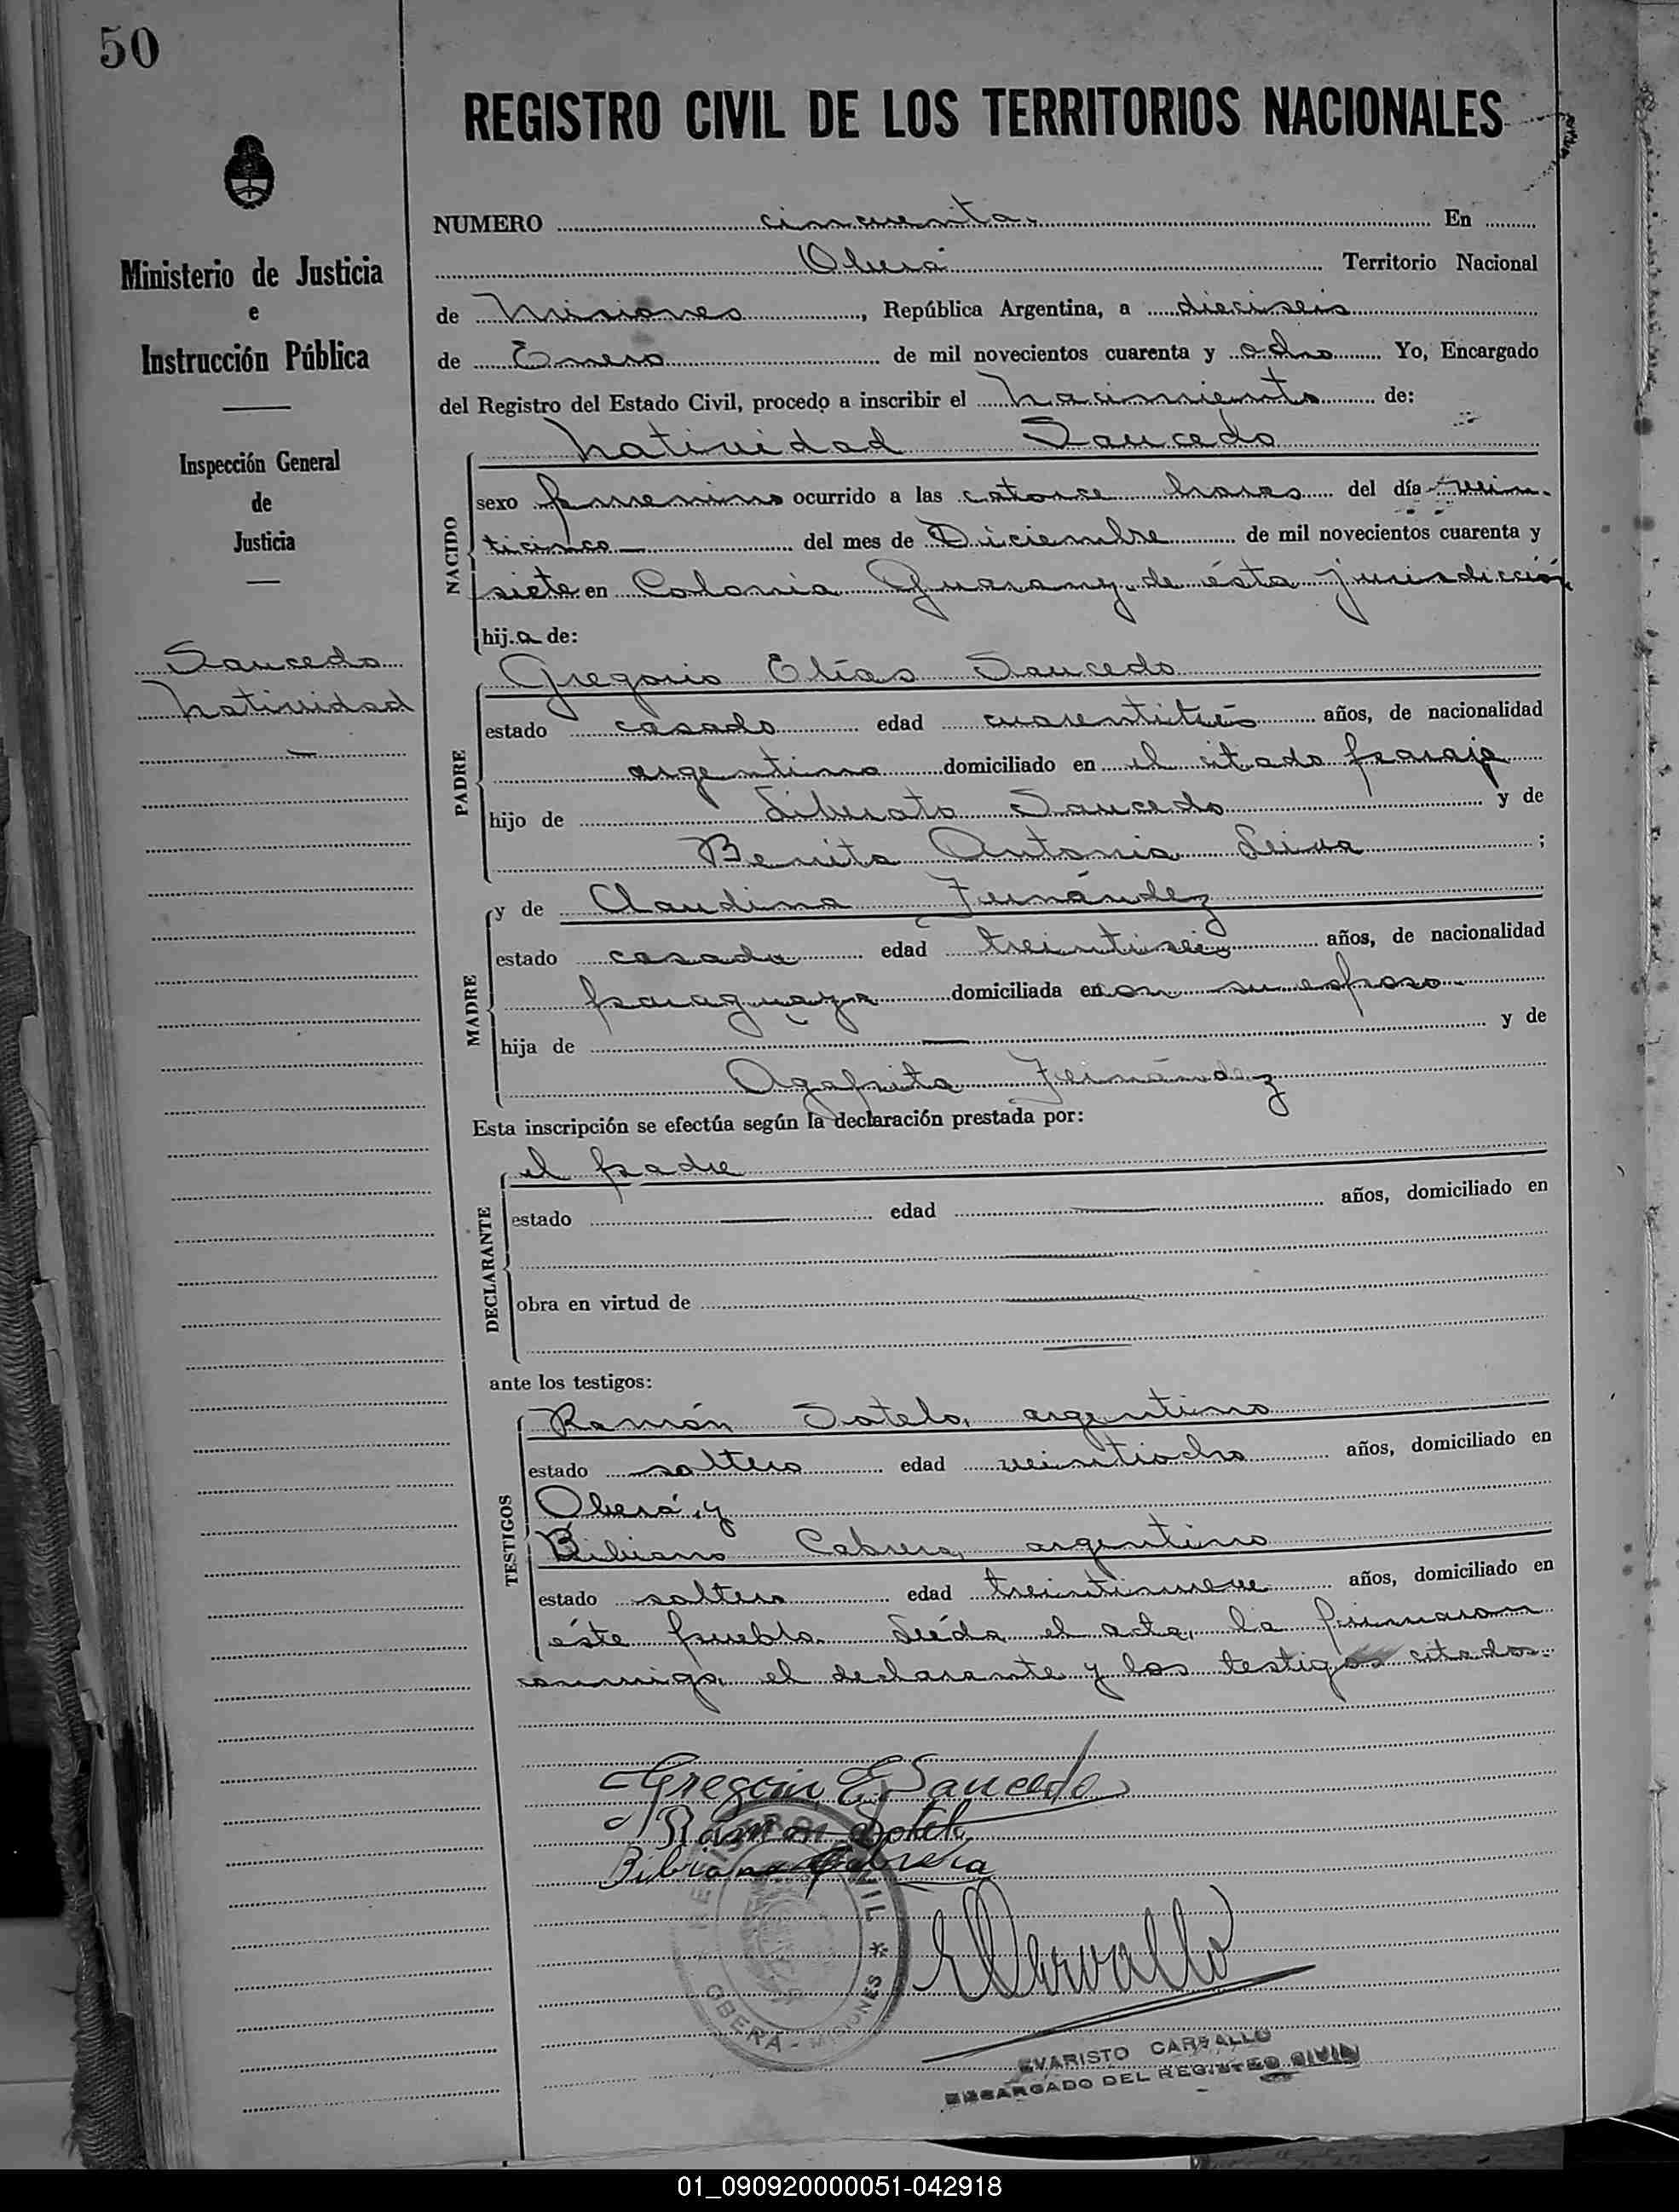 50
REGISTRO CIVIL DE LOS TERRITORIOS NACIONALES
Ministerio de Justicia
e
Instrucción Pública
Inspección General
de
Justicia
Saucedo
Natividad
NUMERO cincuenta En
Oberá Territorio Nacional
de Misiones, República Argentina, a dieciseis
de Enero de mil novecientos cuarenta y ocho Yo, Encargado
del Registro del Estado Civil, procedo a inscribir el nacimiento de:
NACIDO
Natividad Saucedo
sexo femenino ocurrido a las catorce horas del día vein-
ticinco del mes de Diciembre de mil novecientos cuarenta y
siete en Colonia Guarany, de ésta jurisdicción
hija de:
PADRE
Gregorio Elías Saucedo
estado casado edad cuarentitrés años, de nacionalidad
argentino domiciliado en el citado paraje
hijo de Liberato Saucedo y de
Benita Antonia Leiva ;
MADRE
y de Claudina Fernández
estado casada edad treintiseis años, de nacionalidad
paraguaya domiciliada en con su esposo
hija de — y de
Agapita Fernández
Esta inscripción se efectúa según la declaración prestada por:
DECLARANTE
el padre
estado — edad — años, domiciliado en
obra en virtud de —
ante los testigos:
TESTIGOS
Ramón Sotelo, argentino
estado soltero edad veintiocho años, domiciliado en
Oberá, y
Bibiano Cabrera, argentino
estado soltero edad treintinueve años, domiciliado en
éste pueblo. Leída el acta, la firmaron
conmigo, el declarante y los testigos citados.
Gregorio E. Saucedo
Ramon Sotelo
Bibiano Cabrera
REGISTRO CIVIL * OBERA - MISIONES *
ECarvallo
EVARISTO CARVALLO
ENCARGADO DEL REGISTRO CIVIL
01_090920000051-042918